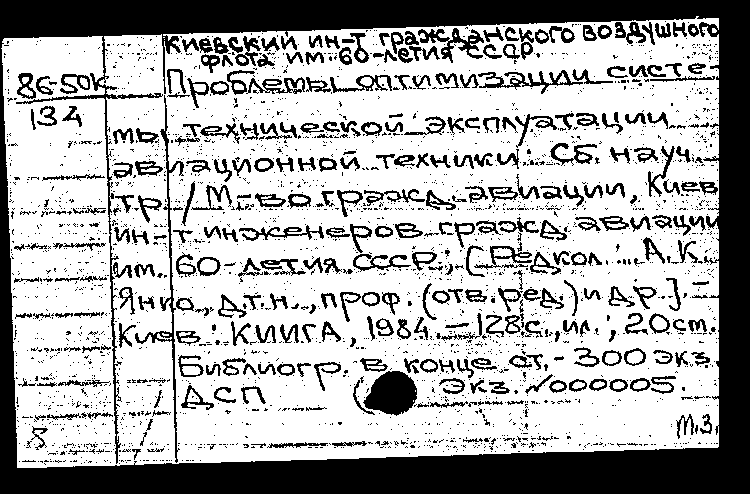 Киевский ин-т гражданского воздушного
флота им. 60-летия СССР.
86-50к
134
Проблемы оптимизации систе-
мы технической эксплуатации
авиационной техники: Сб. науч.
тр. / М-во гражд. авиации, Киев.
ин-т инженеров гражд. авиации
им. 60-летия СССР; [Редкол.: А.К.
Янко, д.т.н., проф. (отв. ред.) и др.]. -
Киев: КИИГА, 1984. - 128с., ил.; 20см.
Библиогр. в конце ст. - 300 экз.
ДСП Экз. №000005.
8
М.З.